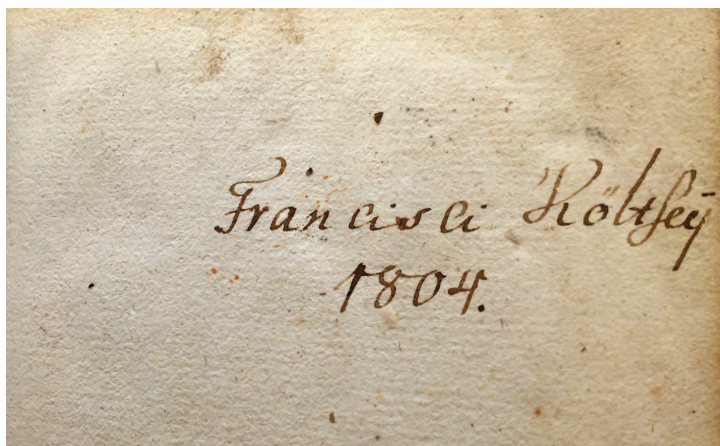 Francisci Költseÿ
1804.